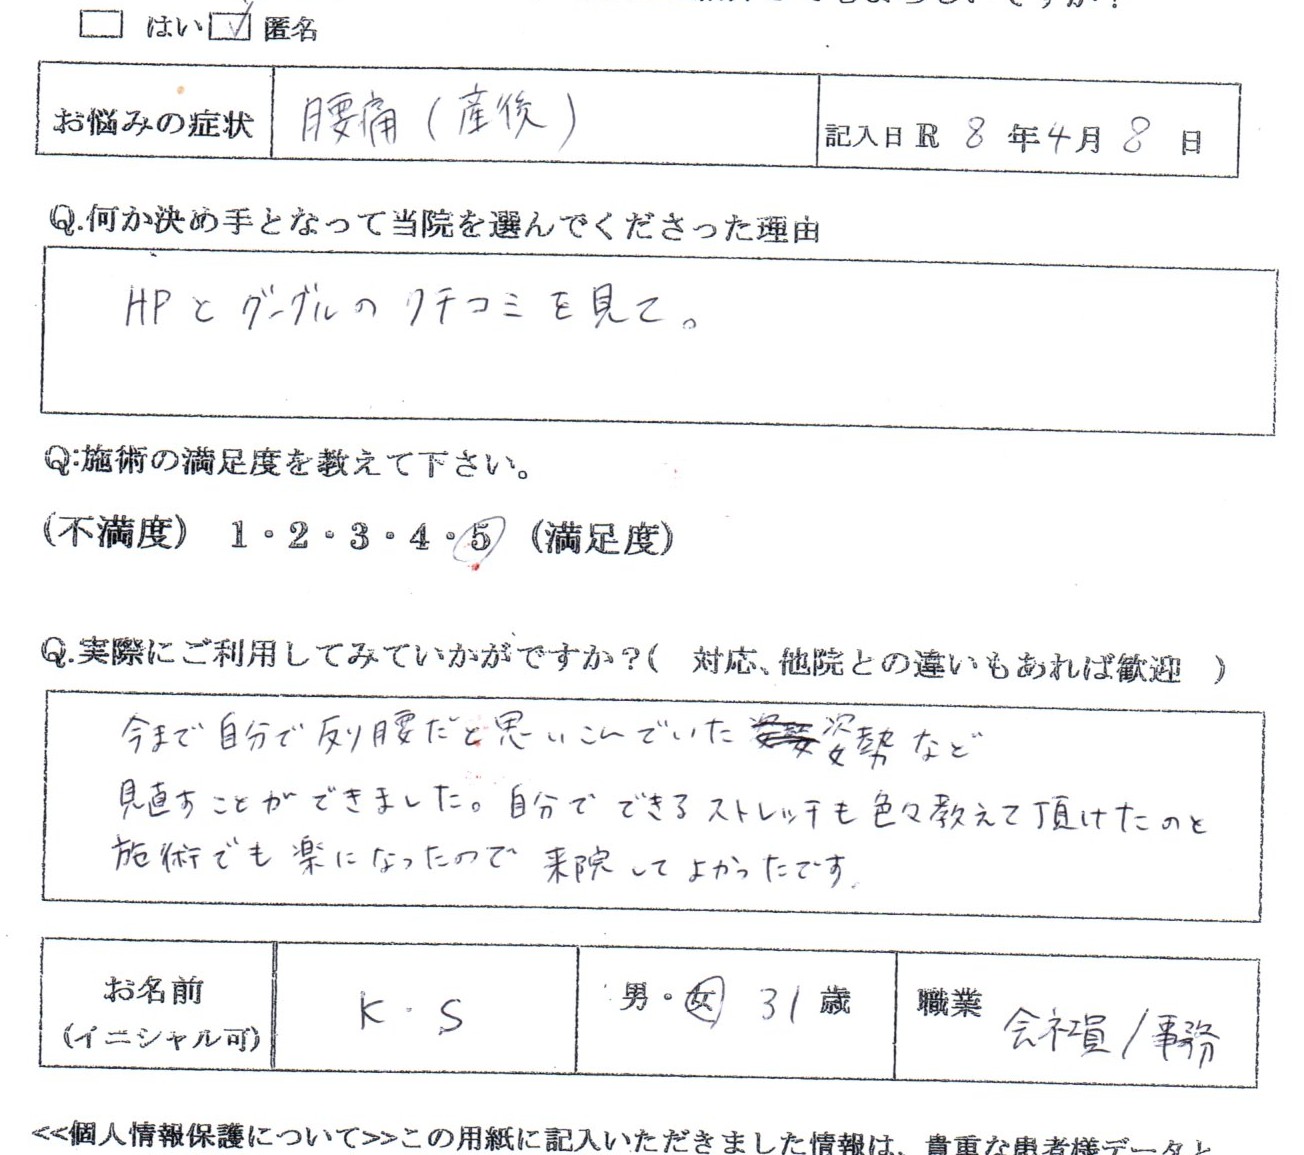 はい 匿名
お悩みの症状 腰痛（産後） 記入日 R 8 年 4 月 8 日
Q.何か決め手となって当院を選んでくださった理由
HPとグーグルのクチコミを見て。
Q:施術の満足度を教えて下さい。
(不満度) 1・2・3・4・5 (満足度)
Q.実際にご利用してみていかがですか？( 対応、他院との違いもあれば歓迎 )
今まで自分で反り腰だと思いこんでいた 姿勢など
見直すことができました。自分でできるストレッチも色々教えて頂けたのと
施術でも楽になったので 来院してよかったです.
お名前
(イニシャル可)
K・S
男・女 31 歳
職業 会社員/事務
<<個人情報保護について>>この用紙に記入いただきました情報は、貴重な患者様データと